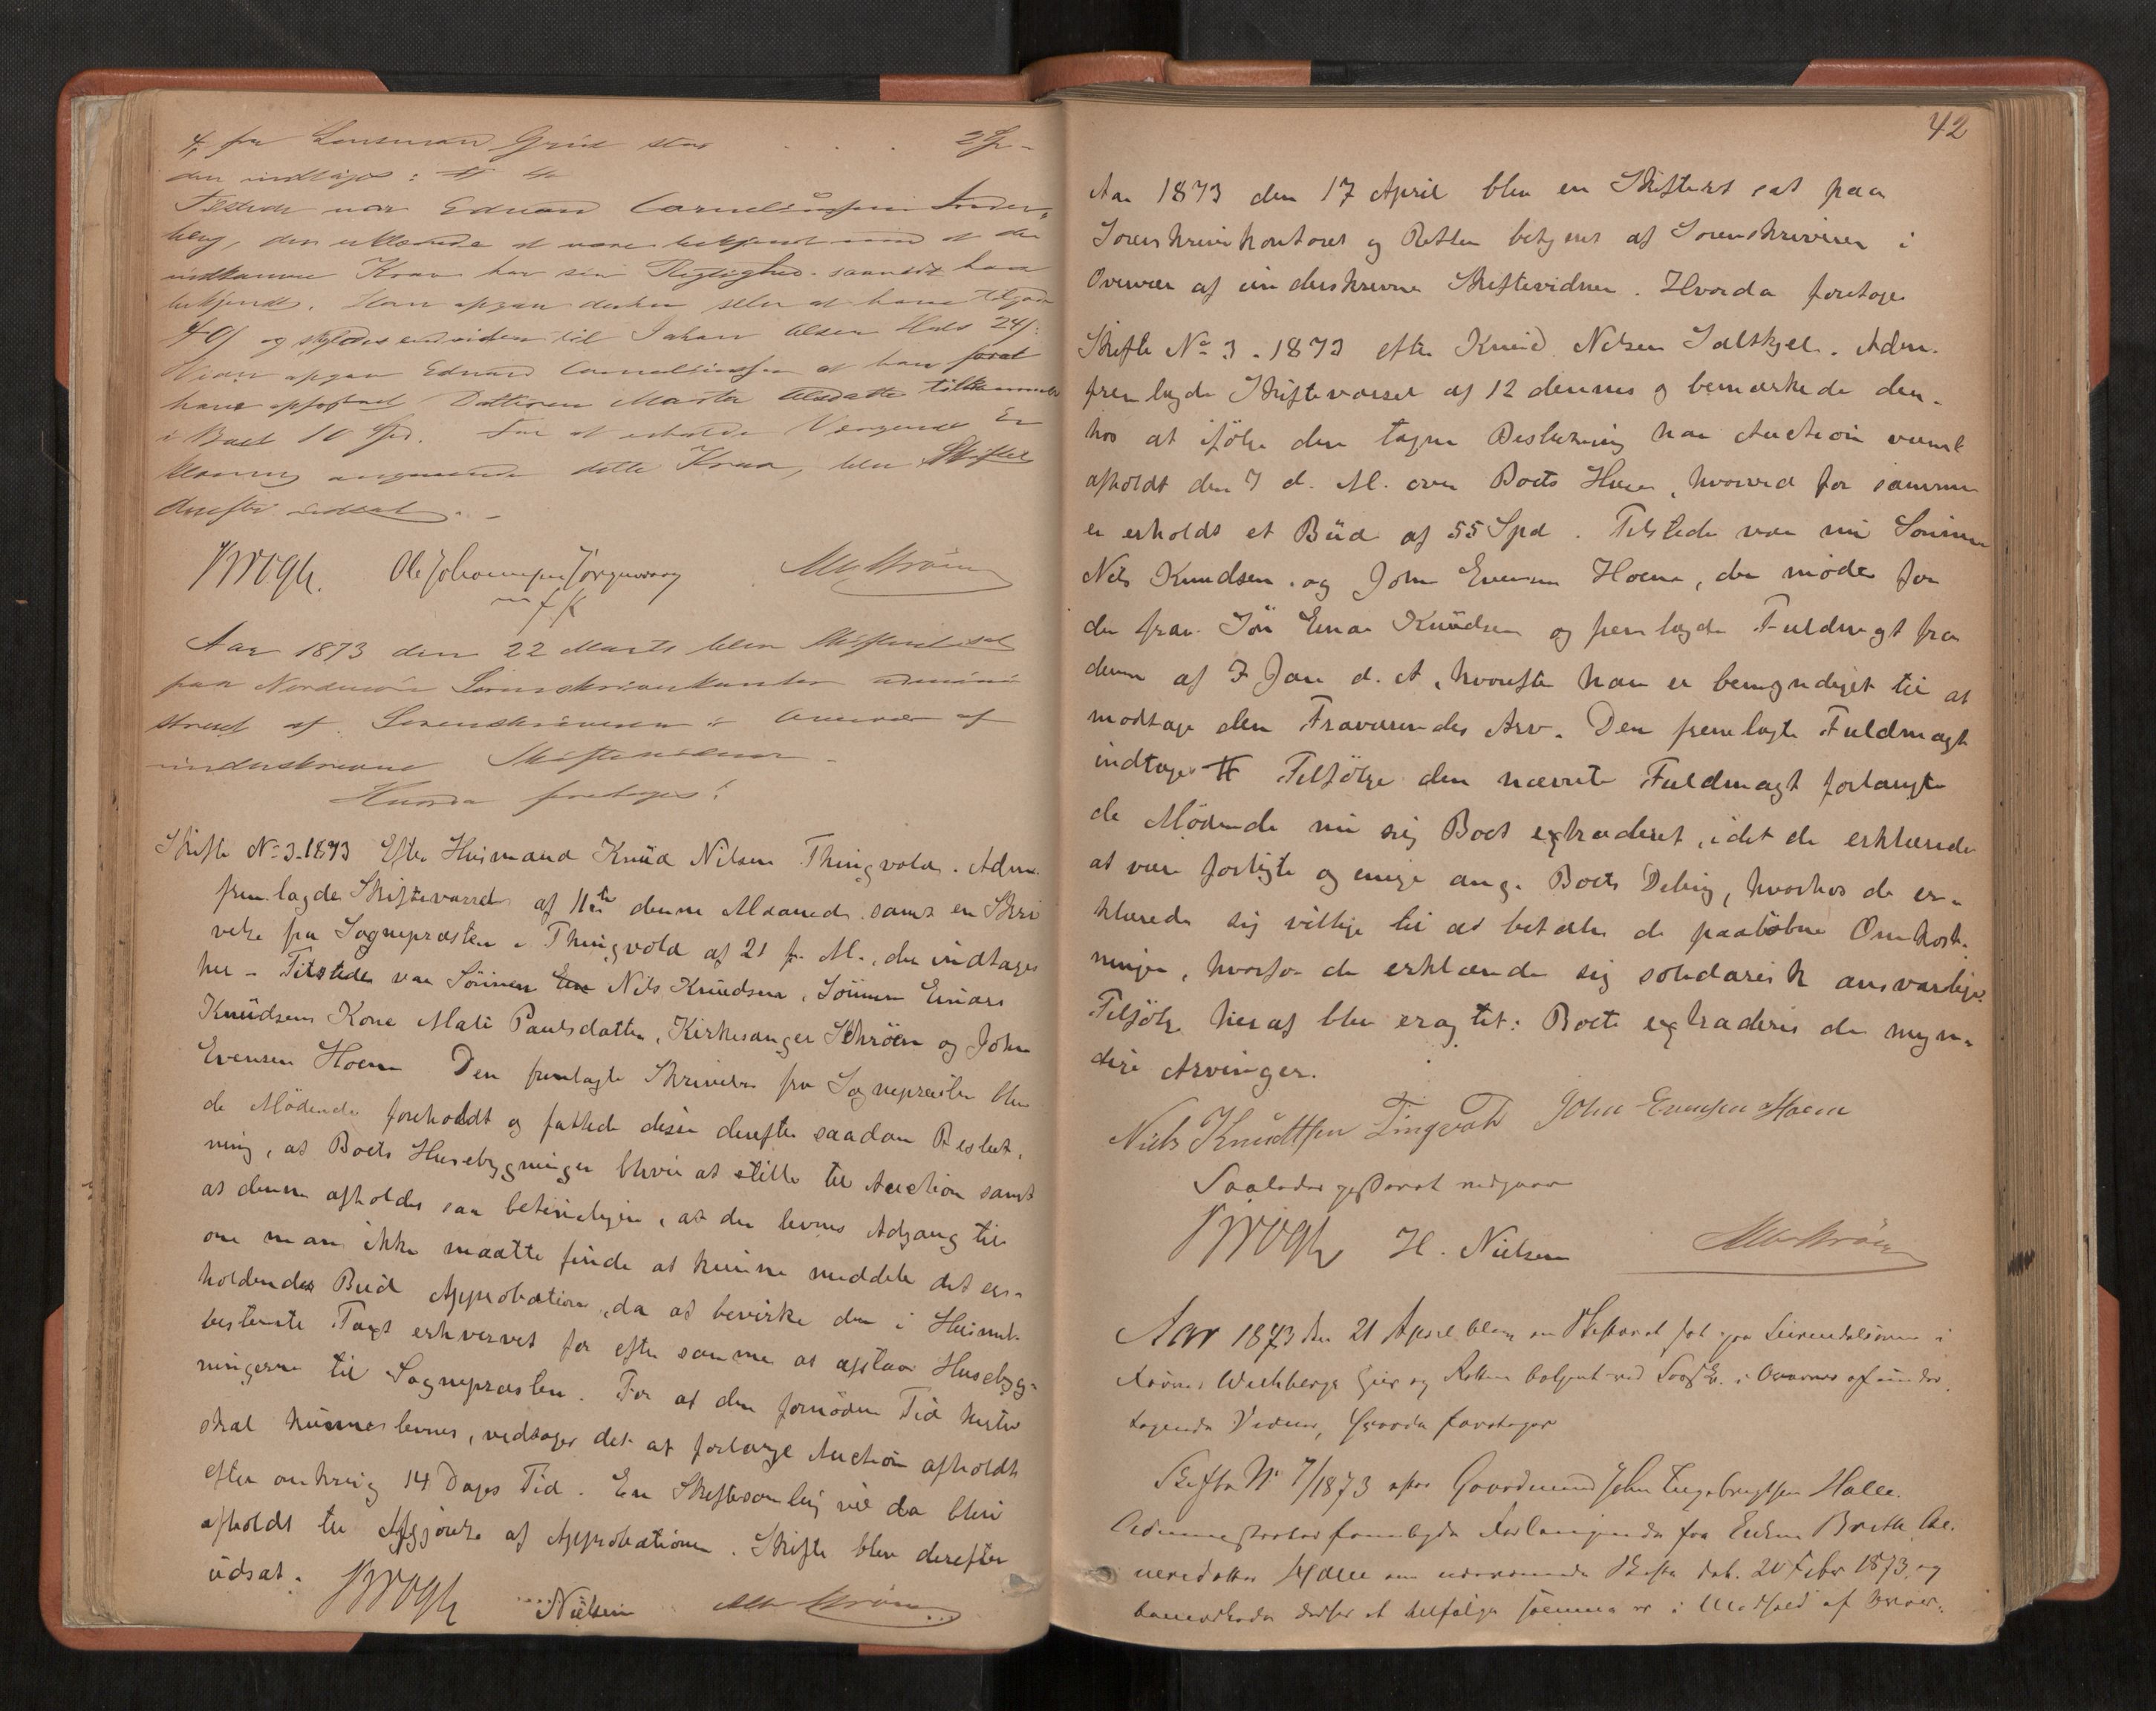 4, fra Lensmand Grüe stor . . . 2 Sp -
der indtages: # 4
Tilstede var Edvard Corneliussen
berg, der erklærede at være bekjendt med at de
indkomne Krav har sin Rigtighed saavidt ham
bekjendt. Han opgav derhos selv at have tilgode
og skyldes endviden til Johan Olsen Hals 24 s:
opgav Edvard Corneliussen at han forat
have opfostret Datteren Marta Olsdatter tilkommer
i Boet 10 Spd. For at erholde Værgens Er
klæring angaaende dette Krav, blev Skiftet
derefter udsat. -
Brogh. Ole Johannesen
Aar 1873 den 22 Marts blev Skifteret sat
paa Nordmøre Sorenskriverkontor admini
streret af Sorenskriveren i Overvær af
underskrevne Skiftevidner -
Hvorda foretoges:
Skifte No 3 - 1873 Efter Husmand Knud Nilsen Thingvold. Adm.
fremlagde Skiftevarsel af 11te denne Maaned samt en Skri
velse fra Sognepræsten i Thingvold af 21 f. M., der indtages
her - Tilstede var Sønnen Nils Knudsen, Sønnen Einars
Knudsens Kone Mali Paulsdatter, Kirkesanger Schrøen og John
Evensen Hoem Den fremlagte Skrivelse fra Sognepræsten blev
de Mødende foreholdt og fattede disse derefter saadan Beslut,
ning, at Boets Husebygninger bliver at stille til Auction samt
at denne afholdes saa betimeligen, at der levnes Adgang til
om man ikke maatte finde at kunne meddele det er-
holdende Bud Approbation, da at bevirke den i Husmt-
bestemte Taxt erhvervet for efter samme at afstaa Husebyg-
ningerne til Sognepræsten. For at den fornødne Tid hertil
skal kunne levnes, vedtoges det at forlange Auction afholdt
efter omkring 14 Dages Tid. En Skiftesamling vil da blive
afholdt til Afgjørelse af Approbationen. Skifte blev derefter
udsat.
Brogh Nielsen
42
Aar 1873 den 17 April blev en Skifteret sat paa
Sorenskriverkontoret og Retten betjent af Sorenskriveren i
Overvær af underskrevne Skiftevidner. Hvorda foretoges
Skifte No 3 - 1873 efter Knud Nilsen Saltkjel. Adm.
fremlagde Skiftevarsel af 12 dennes og bemærkede der-
hos at ifølge den tagne Beslutning har Auction været
afholdt den 7 d. M. over Boets Huse, hvorved for samme
er erholdt et Bud af 55 Spd. Tilstede var nu Sønnen
Nils Knudsen og John Evensen Hoem, der møder for
den frav. Søn Einar Knudsen og fremlagde Fuldmagt fra
denne af 7 Jan d. A, hvorefter han er bemyndiget til at
modtage den Fraværendes Arv. Den fremlagte Fuldmagt
indtages # Tilfølge den nævnte Fuldmagt forlangte
de Mødende nu sig Boet extraderet, idet de erklærede
at være forligte og enige ang. Boets Deling, hvorhos de er-
klærede sig villige til at betale de paaløbne Omkost-
ninger, hvorfor de erklærede sig solidarisk ansvarlige.
Tilfølge heraf blev eragtet: Boet extraderes de myn-
dige Arvinger.
Niels Knudtsen Tingvold John Evensen Hoem
Saaledes passeret vedgaaes
Brogh H. Nielsen
Aar 1873 den 21 April blev en Skifteret sat paa
og Retten betjent ved i Overvær af under
tegnede Vidner, Hvorda foretoges
Skifte No 7/1873 efter Gaardmand John Ingebrigtsen Halle.
Administrator fremlagde Forlangende fra Enken Brith
neredatter Halle om Skifte dat. 20 Febr 1873, og
bemærkede derhos at Ifølge samme er i Medhold af